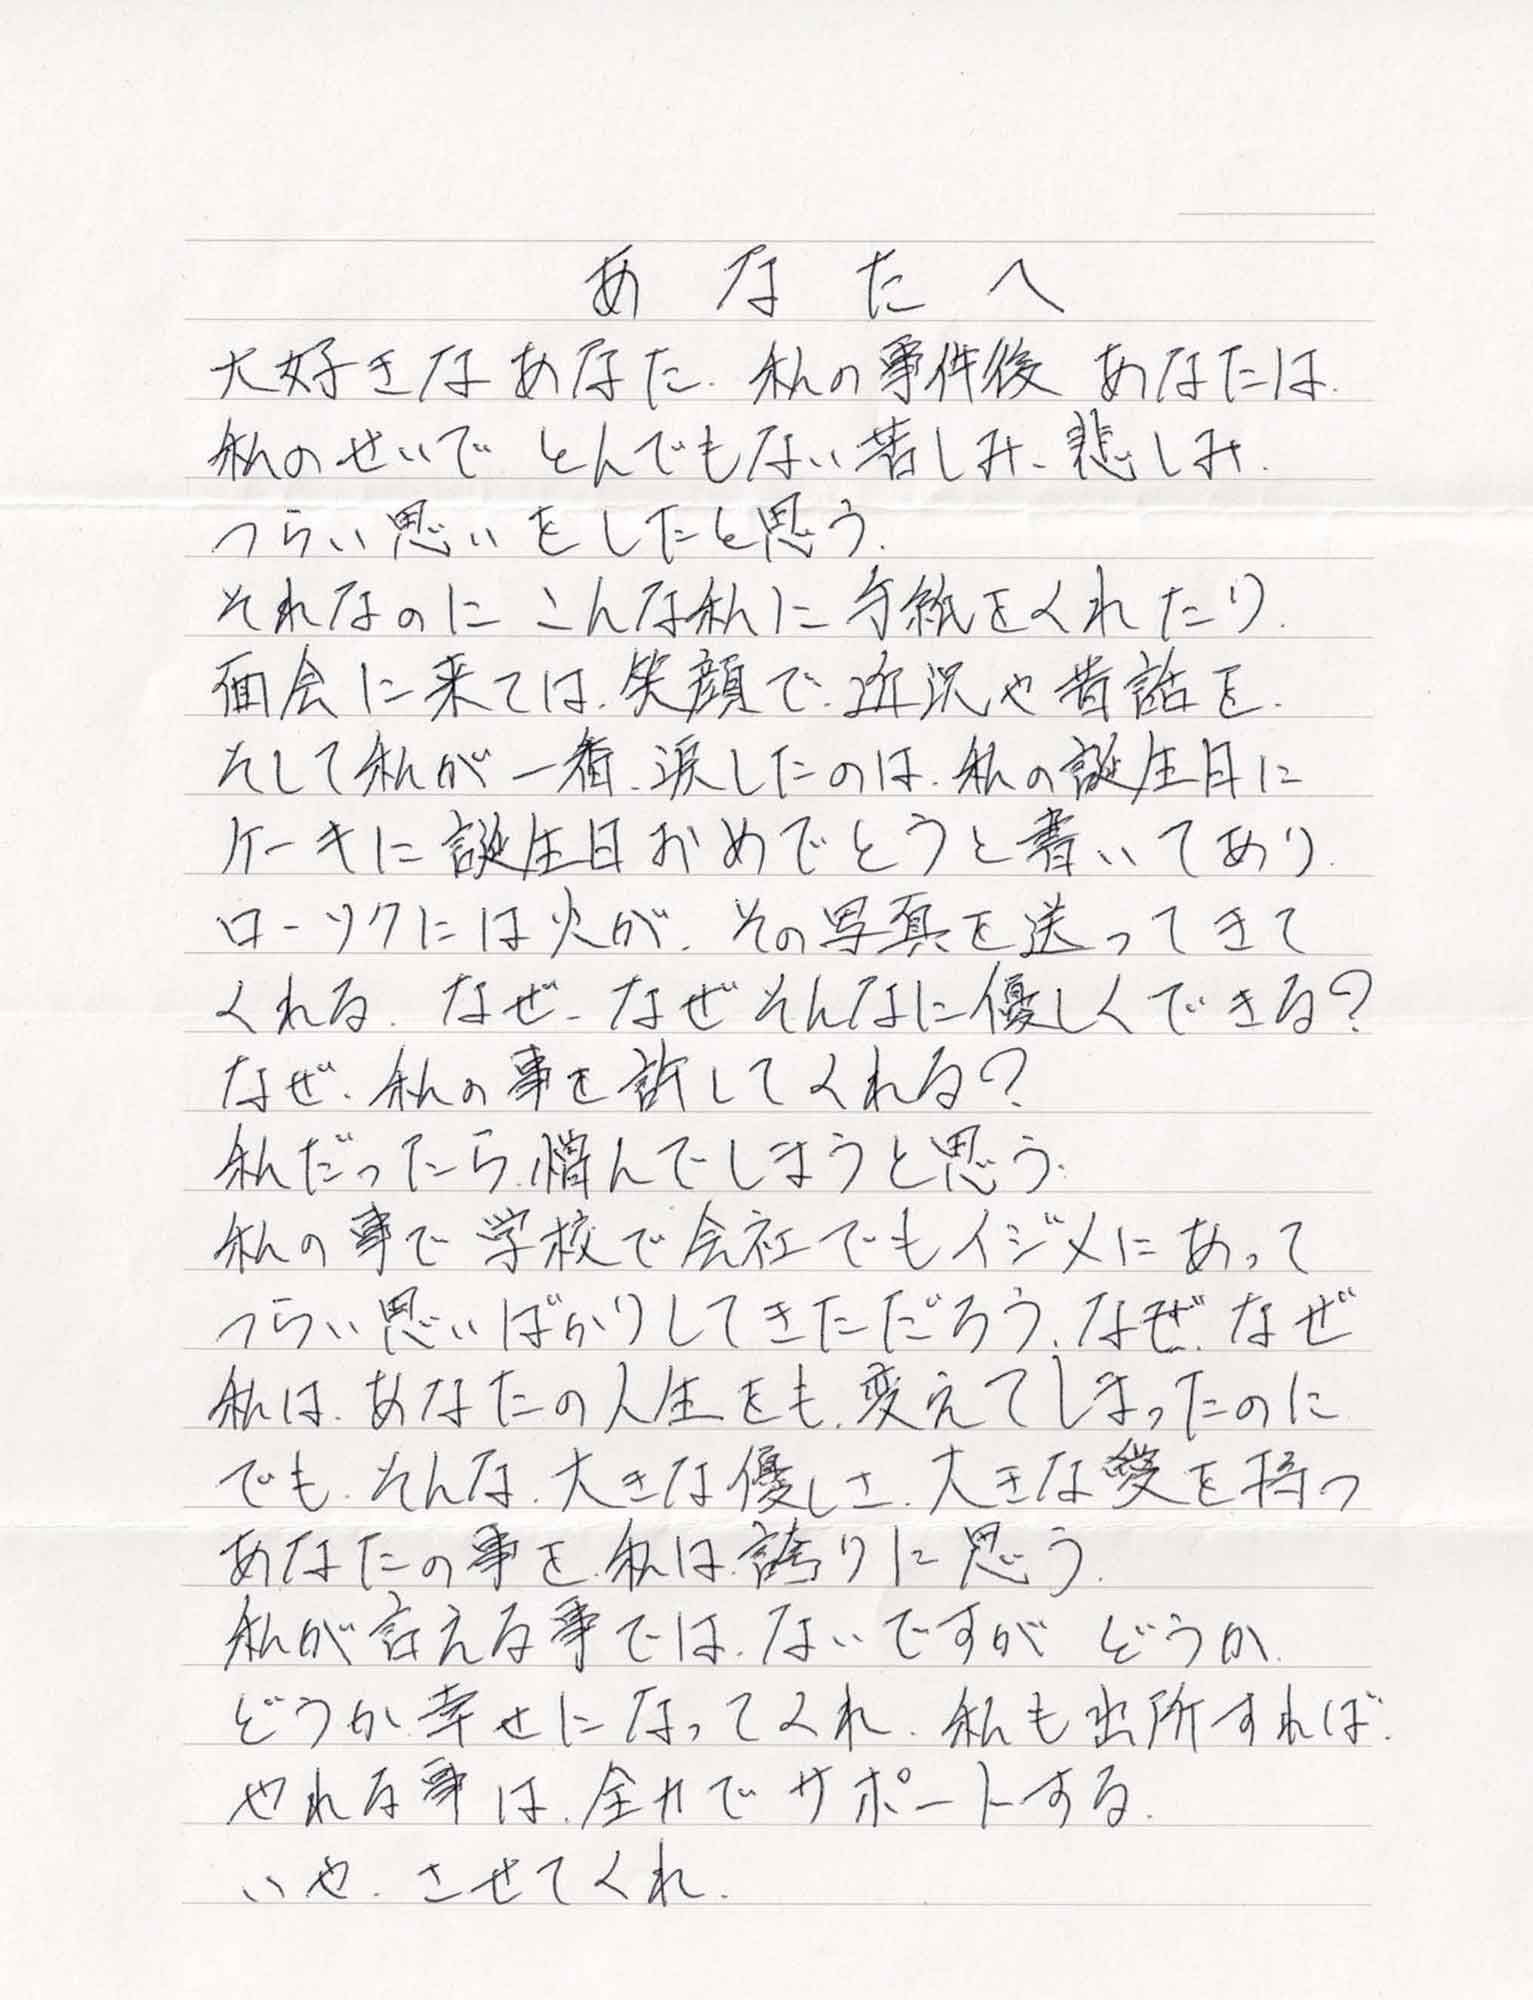 あなたへ
大好きなあなた、私の事件後 あなたは、
私のせいで とんでもない苦しみ、悲しみ、
つらい思いをしたと思う。
それなのに こんな私に手紙をくれたり、
面会に来ては、笑顔で、近況や昔話を、
そして私が一番、涙したのは、私の誕生日に
ケーキに誕生日おめでとうと書いてあり、
ローソクには火が、その写真を送ってきて
くれる。なぜ、なぜそんなに優しくできる?
なぜ、私の事を許してくれる?
私だったら、悩んでしまうと思う。
私の事で学校で会社でもイジメにあって
つらい思いばかりしてきただろう、なぜ、なぜ
私は、あなたの人生をも、変えてしまったのに
でも、そんな、大きな優しさ、大きな愛を持つ
あなたの事を、私は、誇りに思う。
私が言える事では、ないですが どうか、
どうか、幸せになってくれ、私も出所すれば、
やれる事は、全力でサポートする。
いや、させてくれ。